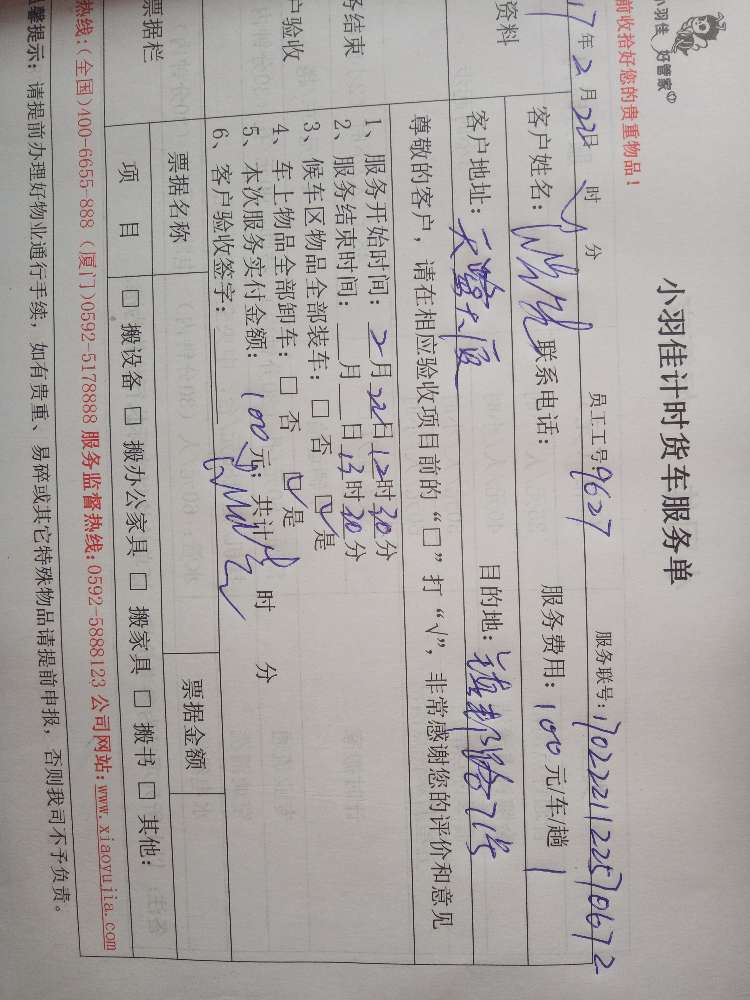 小羽佳
好管家
小羽佳计时货车服务单
前收拾好您的贵重物品！
17年2月22日 时 分 员工工号9627 服务联号:
资料 客户姓名: 联系电话: 服务费用: 100元/车/趟
客户地址: 目的地:
尊敬的客户，请在相应验收项目前的“□”打“√”，非常感谢您的评价和意见
务结束
户验收
1、服务开始时间: 2月22日12时30分
2、服务结束时间: 月 日13时30分
3、候车区物品全部装车: □ 否 ☑是
4、车上物品全部卸车: □ 否 ☑是
5、本次服务实付金额: 100元; 共计 时 分
6、客户验收签字:
票据栏 票据名称 票据金额
项 目 □ 搬设备 □ 搬办公家具 □ 搬家具 □ 搬书 □ 其他:
热线:(全国)400-6655-888 (厦门)0592-5178888 服务监督热线:0592-5888123 公司网站:www.xiaoyujia.com
馨提示: 请提前办理好物业通行手续, 如有贵重、易碎或其它特殊物品请提前申报, 否则我司不予负责。